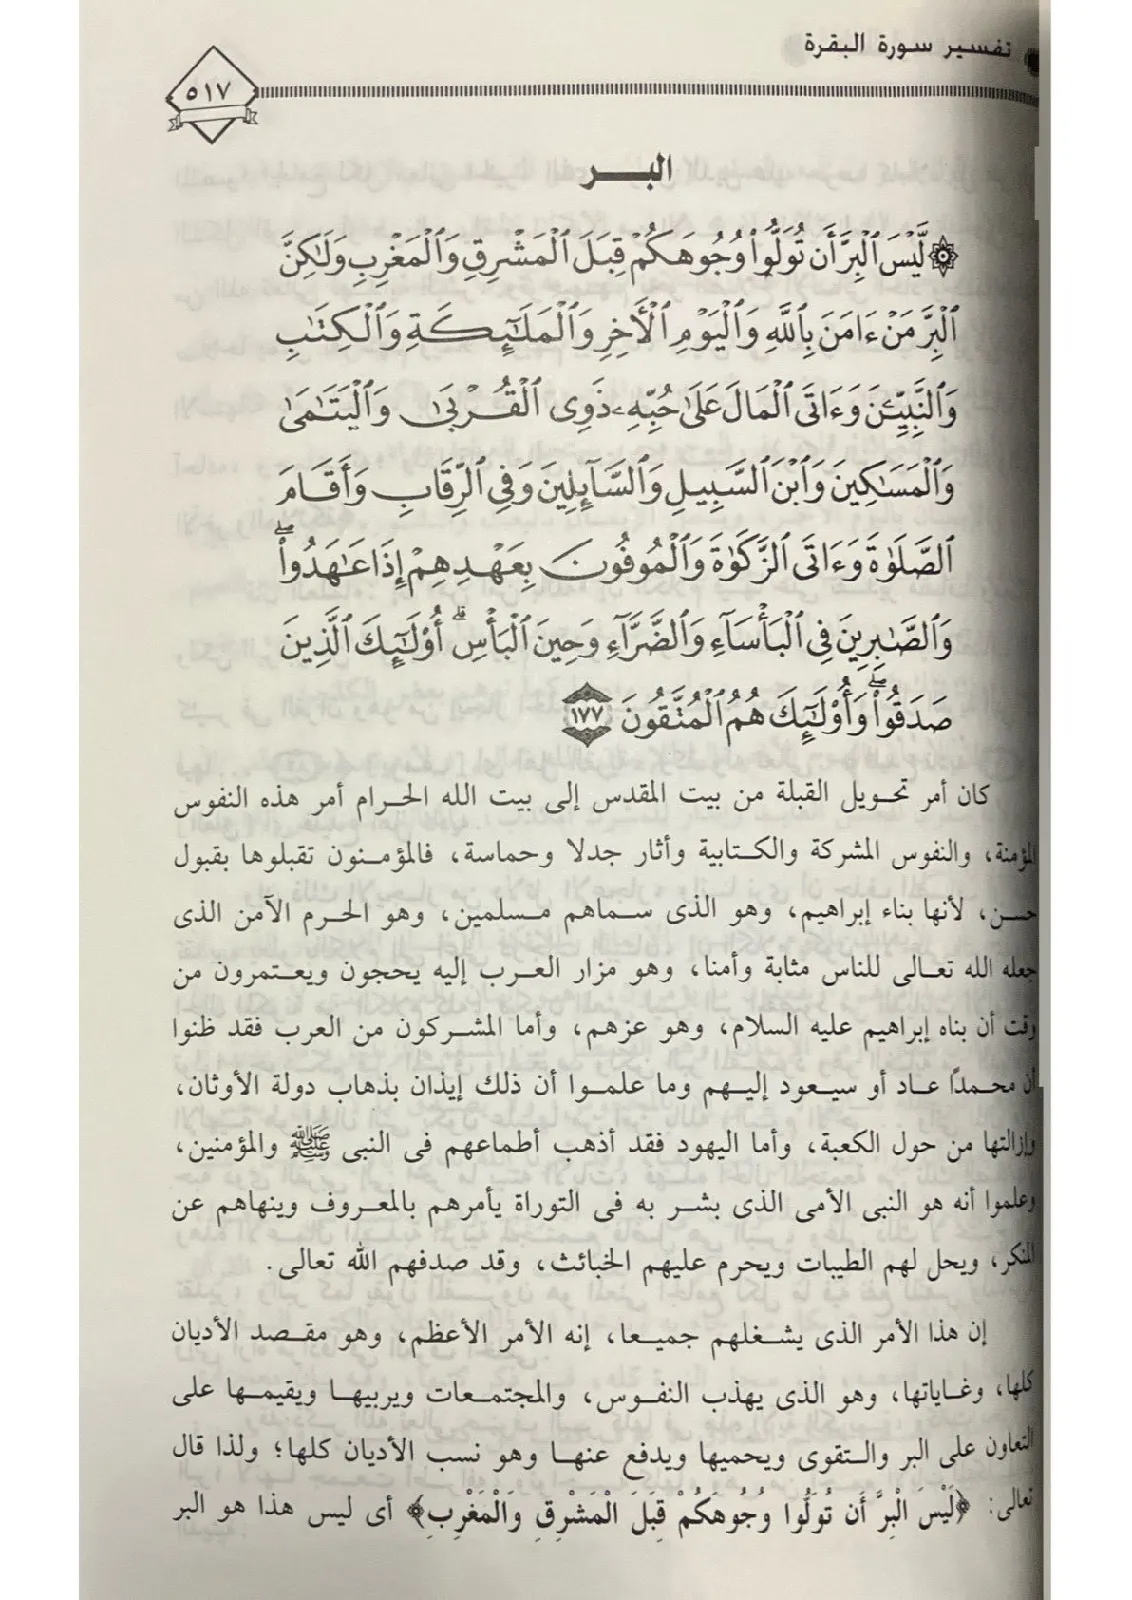 تفسير سورة البقرة
٥١٧
البـــر
۞ لَّيْسَ ٱلْبِرَّ أَن تُوَلُّوا۟ وُجُوهَكُمْ قِبَلَ ٱلْمَشْرِقِ وَٱلْمَغْرِبِ وَلَـٰكِنَّ
ٱلْبِرَّ مَنْ ءَامَنَ بِٱللَّهِ وَٱلْيَوْمِ ٱلْـَٔاخِرِ وَٱلْمَلَـٰٓئِكَةِ وَٱلْكِتَـٰبِ
وَٱلنَّبِيِّـۧنَ وَءَاتَى ٱلْمَالَ عَلَىٰ حُبِّهِۦ ذَوِى ٱلْقُرْبَىٰ وَٱلْيَتَـٰمَىٰ
وَٱلْمَسَـٰكِينَ وَٱبْنَ ٱلسَّبِيلِ وَٱلسَّآئِلِينَ وَفِى ٱلرِّقَابِ وَأَقَامَ
ٱلصَّلَوٰةَ وَءَاتَى ٱلزَّكَوٰةَ وَٱلْمُوفُونَ بِعَهْدِهِمْ إِذَا عَـٰهَدُوا۟ ۖ
وَٱلصَّـٰبِرِينَ فِى ٱلْبَأْسَآءِ وَٱلضَّرَّآءِ وَحِينَ ٱلْبَأْسِ ۗ أُو۟لَـٰٓئِكَ ٱلَّذِينَ
صَدَقُوا۟ ۖ وَأُو۟لَـٰٓئِكَ هُمُ ٱلْمُتَّقُونَ ١٧٧
كان أمر تحويل القبلة من بيت المقدس إلى بيت الله الحرام أمر هذه النفوس
المؤمنة، والنفوس المشركة والكتابية وأثار جدلا وحماسة، فالمؤمنون تقبلوها بقبول
حسن، لأنها بناء إبراهيم، وهو الذى سماهم مسلمين، وهو الحرم الآمن الذى
جعله الله تعالى للناس مثابة وأمنا، وهو مزار العرب إليه يحجون ويعتمرون من
وقت أن بناه إبراهيم عليه السلام، وهو عزهم، وأما المشركون من العرب فقد ظنوا
أن محمدًا عاد أو سيعود إليهم وما علموا أن ذلك إيذان بذهاب دولة الأوثان،
وإزالتها من حول الكعبة، وأما اليهود فقد أذهب أطماعهم فى النبى ﷺ والمؤمنين،
وعلموا أنه هو النبى الأمى الذى بشر به فى التوراة يأمرهم بالمعروف وينهاهم عن
المنكر، ويحل لهم الطيبات ويحرم عليهم الخبائث، وقد صدفهم الله تعالى.
إن هذا الأمر الذى يشغلهم جميعا، إنه الأمر الأعظم، وهو مقصد الأديان
كلها، وغاياتها، وهو الذى يهذب النفوس، والمجتمعات ويربيها ويقيمها على
التعاون على البر والتقوى ويحميها ويدفع عنها وهو نسب الأديان كلها؛ ولذا قال
تعالى: ﴿لَيْسَ الْبِرَّ أَن تُوَلُّوا وُجُوهَكُمْ قِبَلَ الْمَشْرِقِ وَالْمَغْرِبِ﴾ أى ليس هذا هو البر